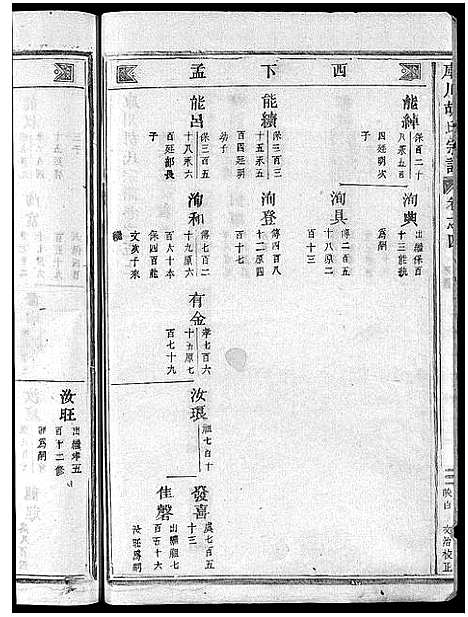 西下孟
能綽
保百二十
八承五百
四廷明次
子
洵典
出繼保百
十三能執
為嗣
洵具
傅二百五
十八原二
百十三
能續
保三百三
十五承五
百四廷明
幼子
洵登
傅四百八
十二原四
百十七
能呂
保三百五
十八承六
百廷部長
子
洵和
傅七百二
十九原六
百六十本
保四百能
文次子來
繼
有金
孝七百六
十五原七
百七十九
汝琅
祖七百十
發喜
虞七百五
十三
佳磬
出繼祖七
百五十六
汝莊為嗣
卷之四
校正
汝旺
出繼孝五
百十二修
為嗣